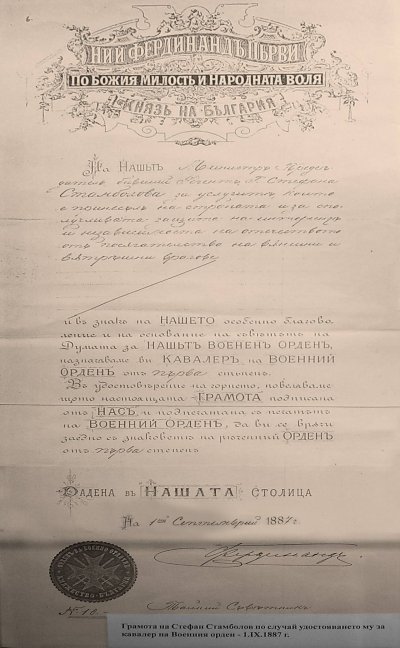 6
НИЙ ФЕРДИНАНДЪ ПЪРВИ
ПО БОЖИЯ МИЛОСТЬ И НАРОДНАТА ВОЛЯ
КНЯЗЬ НА БЪЛГАРИЯ
На НАШЪТЪ Министръ Предсе-
дателъ, бивший Регентъ, Стефанъ
Стамболова за услугитѣ, които
е принесълъ на страната и за спо-
лучливата защита на интереситѣ
и независимостта на отечеството
отъ посѣгателство на външни и
вѫтрѣшни врагове
и въ знакъ на НАШЕТО особенно благово-
ление и на основание на съвѣтътъ на
Думата за НАШЪТЪ ВОЕНЕН ОРДЕНЪ,
назначаваме ви КАВАЛЕР, на ВОЕННИЙ
ОРДЕНЪ отъ първа степень.
Въ удостовѣрение на горнето, повеляваме
щото настоящата ГРАМОТА подписана
отъ НАСЪ, и подпечатана съ печатътъ
на ВОЕННИЙ ОРДЕНЪ, да ви се врѫчи
заедно съ знаковетѣ на рѣченний ОРДЕНЪ
отъ първа степень
ДАДЕНА ВЪ НАШАТА СТОЛИЦА
На 1 Септемврий 1887 г.
Фердинандъ
№ 10.
Тайний Съвѣтникъ
Грамота на Стефан Стамболов по случай удостояването му за
кавалер на Военния орден - 1.IX.1887 г.